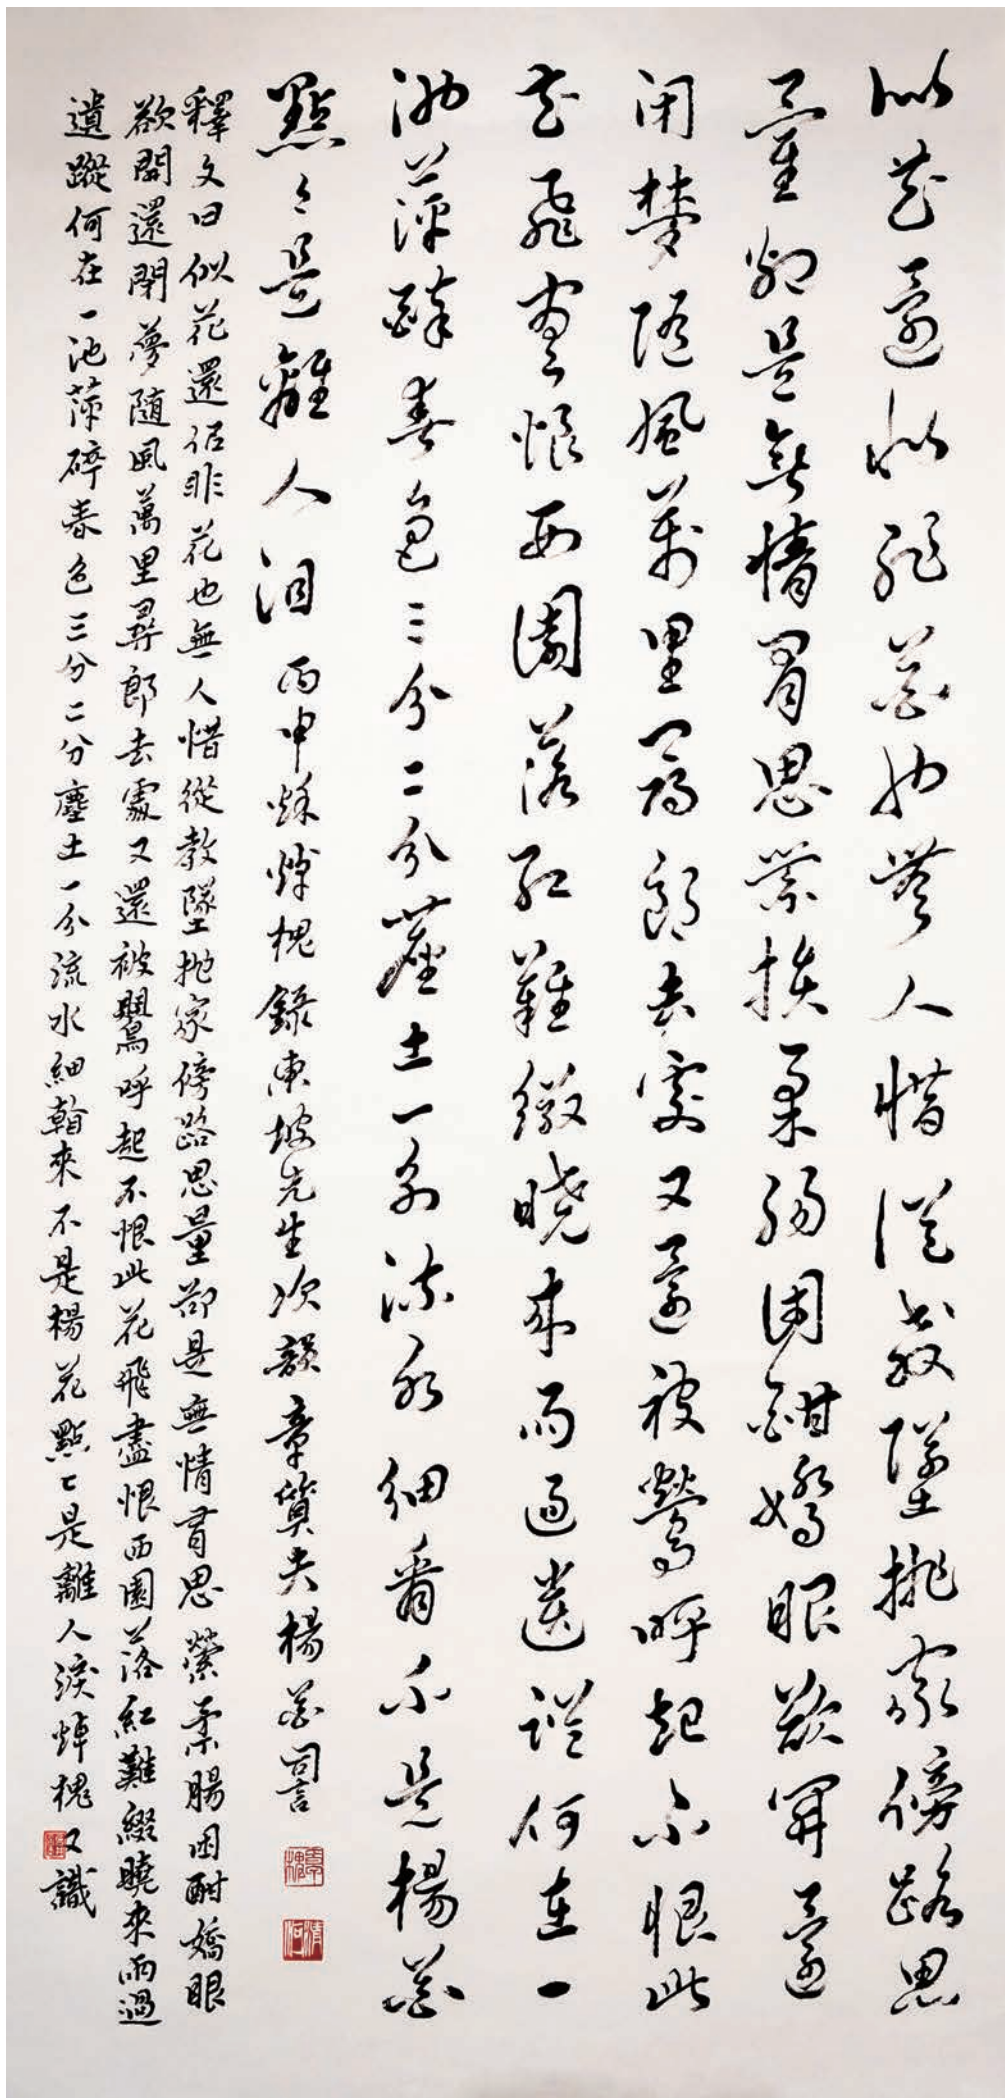 似花還似非花也無人惜從教墜拋家傍路思
量卻是無情有思縈損柔腸困酣嬌眼欲開還
閉夢隨風萬里尋郎去處又還被鶯呼起不恨此
花飛盡恨西園落紅難綴曉來雨過遺蹤何在一
池萍碎春色三分二分塵土一分流水細看不是楊花
點々是離人泪 丙申秋焯槐錄東坡先生次韻章質夫楊花詞
釋文曰似花還似非花也無人惜從教墜拋家傍路思量卻是無情有思縈柔腸困酣嬌眼
欲開還閉夢隨風萬里尋郎去處又還被鶯呼起不恨此花飛盡恨西園落紅難綴曉來雨過
遺蹤何在一池萍碎春色三分二分塵土一分流水細看來不是楊花點々是離人淚焯槐又識